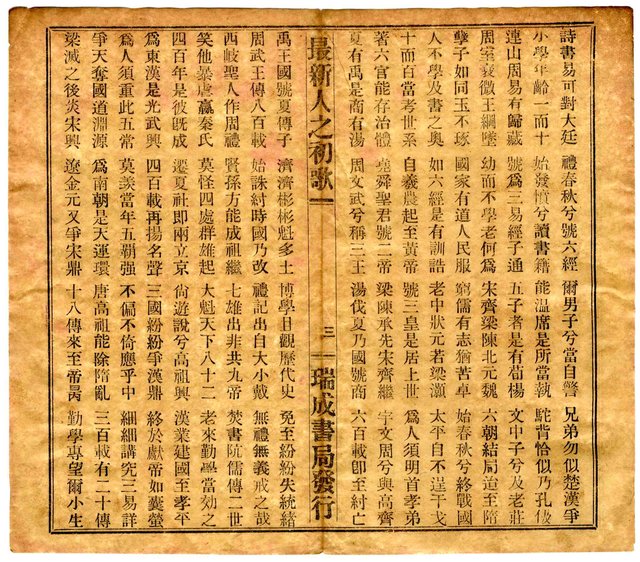 詩書易可對大廷　禮春秋兮號六經　爾男子兮當自警　兄弟勿似楚漢爭
小學年齡一而十　始發憤兮讀書籍　能溫席是所當執　駝背恰似乃孔伋
連山周易有歸藏　號爲三易經子通　五子者是有荀楊　文中子兮及老莊
周室衰微王綱墜　幼而不學老何爲　宋齊梁陳北元魏　六朝結局迨至隋
孽子如同玉不琢　國家有道人民服　窮儒有志猶苦卓　始春秋兮終戰國
人不學及書之奧　如六經是有訓誥　老中狀元若梁灝　太平自不逞干戈
十而百當考世系　自羲農起至黃帝　號三皇是居上世　爲人須明首孝弟
著六官能存治體　堯舜聖君號二帝　梁陳承先宋齊繼　宇文周兮與高齊
夏有禹是商有湯　周文武兮稱三王　湯伐夏乃國號商　六百載卽至紂亡
最新人之初歌　三　瑞成書局發行
禹王國號夏傳子　濟濟彬彬魁多士　博學目觀歷代史　免至紛紛失統緒
周武王傳八百載　始誅紂時國乃改　禮記出自大小戴　無禮無義戒之哉
西岐聖人作周禮　賢孫方能成祖繼　七雄出非共九帝　焚書阬儒傳二世
笑他暴虐嬴秦氏　莫怪四處群雄起　大魁天下八十二　老來勤學當効之
四百年是彼旣成　遷夏社卽兩立京　尚遊說兮高祖興　漢業建國至孝平
爲東漢是光武興　四百載再揚名聲　三國紛紛爭漢鼎　終於獻帝如囊螢
爲人須重此五常　莫談當年五覇强　不偏不倚應乎中　細細講究三易詳
爭天奪國道淵源　爲南朝是天運環　唐高祖能除隋亂　三百載有二十傳
梁滅之後炎宋興　遼金元又爭宋鼎　十八傳來至帝昺　勤學專望爾小生